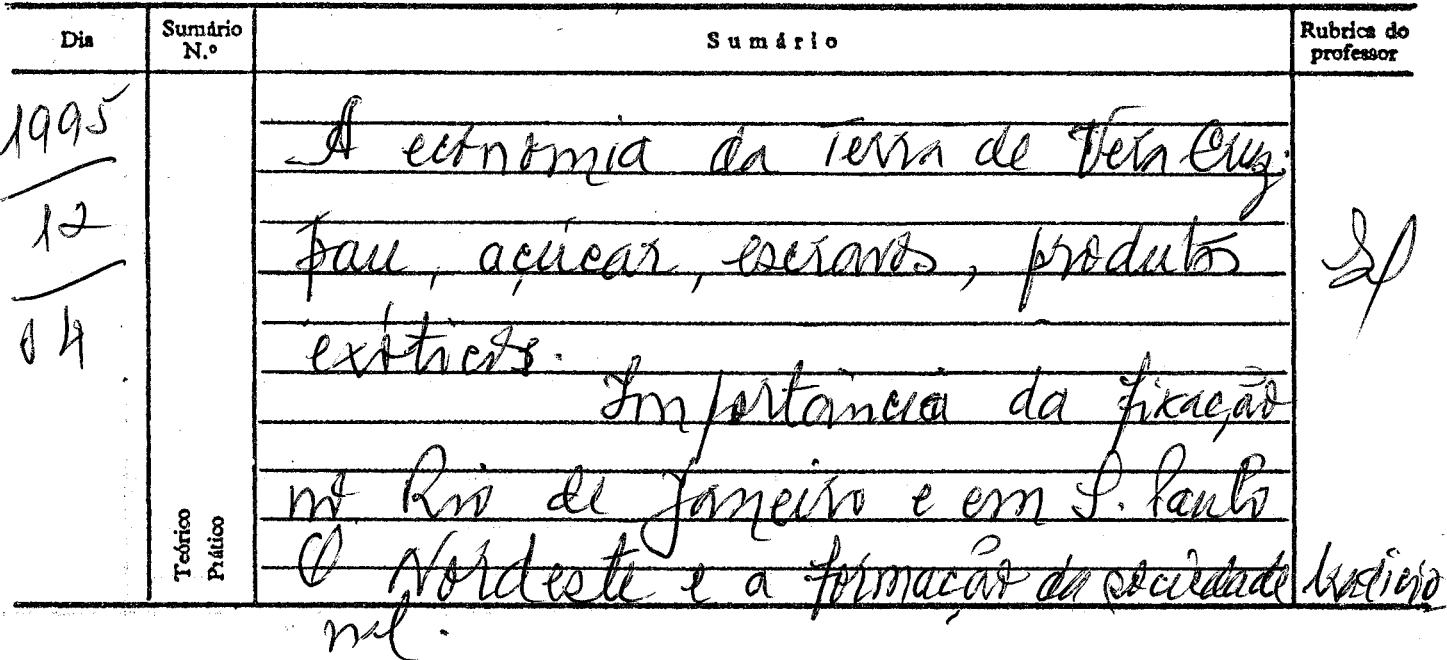 Dia Sumário N.º Sumário Rubrica do professor
1995
12
04
A economia da Terra de Vera Cruz:
pau, açúcar, escravos, produtos
exóticos.
Importância da fixação
no Rio de Janeiro e em S. Paulo
O Nordeste e a formação da sociedade tradicio
nal.
Teórico
Prático